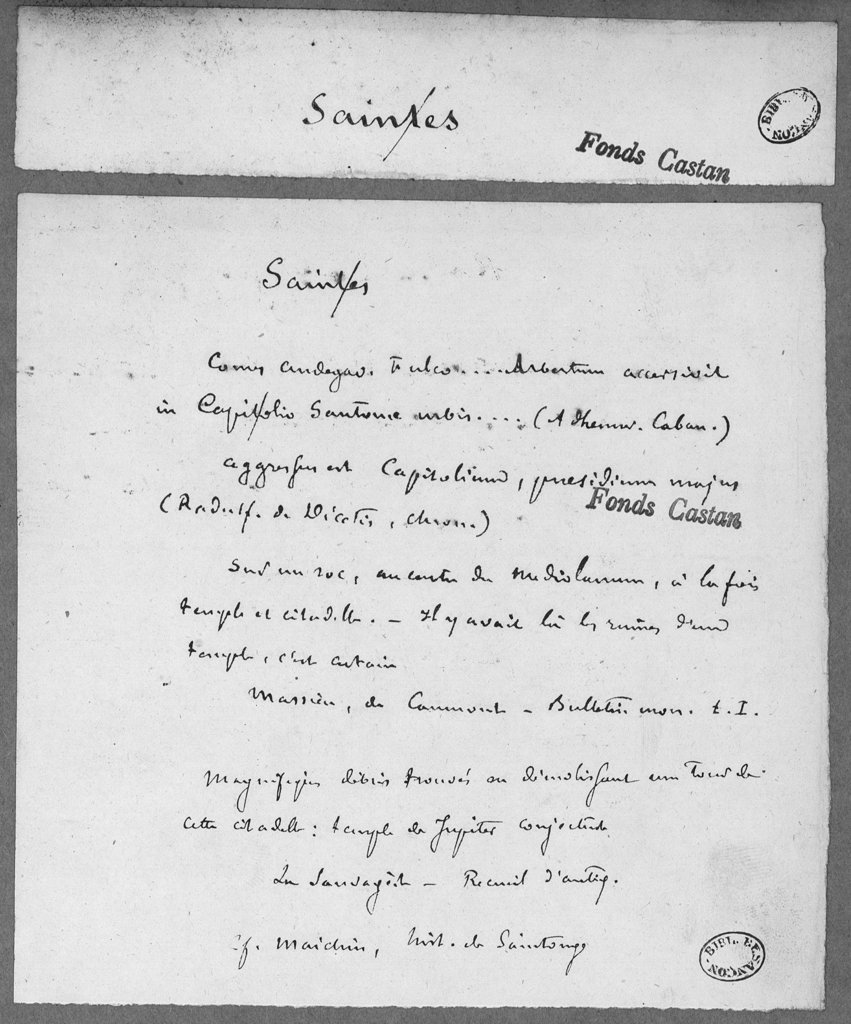 Saintes
BIBL. BESANCON
Fonds Castan
Saintes
Comes andegav. Fulco .... Arbertum accersivit
in Capitolio Santonæ urbis .... (Adhemar. Caban.)
aggressus est Capitolium, præsidium majus
Fonds Castan
(Radulf. de Diceto, chron.)
Sur un roc, au centre du Mediolanum, à la fois
temple et citadelle. — Il y avait là les ruines d'un
temple, c'est certain
Massiou, de Caumont — Bulletin mon. t. I.
Magnifiques débris trouvés en démolissant une tour de
cette citadelle : temple de Jupiter conjecturé
La Sauvagère — Recueil d'antiq.
Cf. Maichin, hist. de Saintonge
BIBL. BESANCON